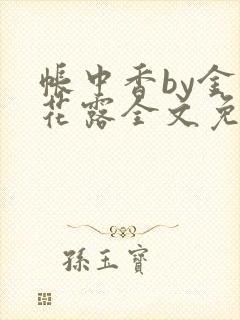 帳中香by金
花露全文免
孫玉寶